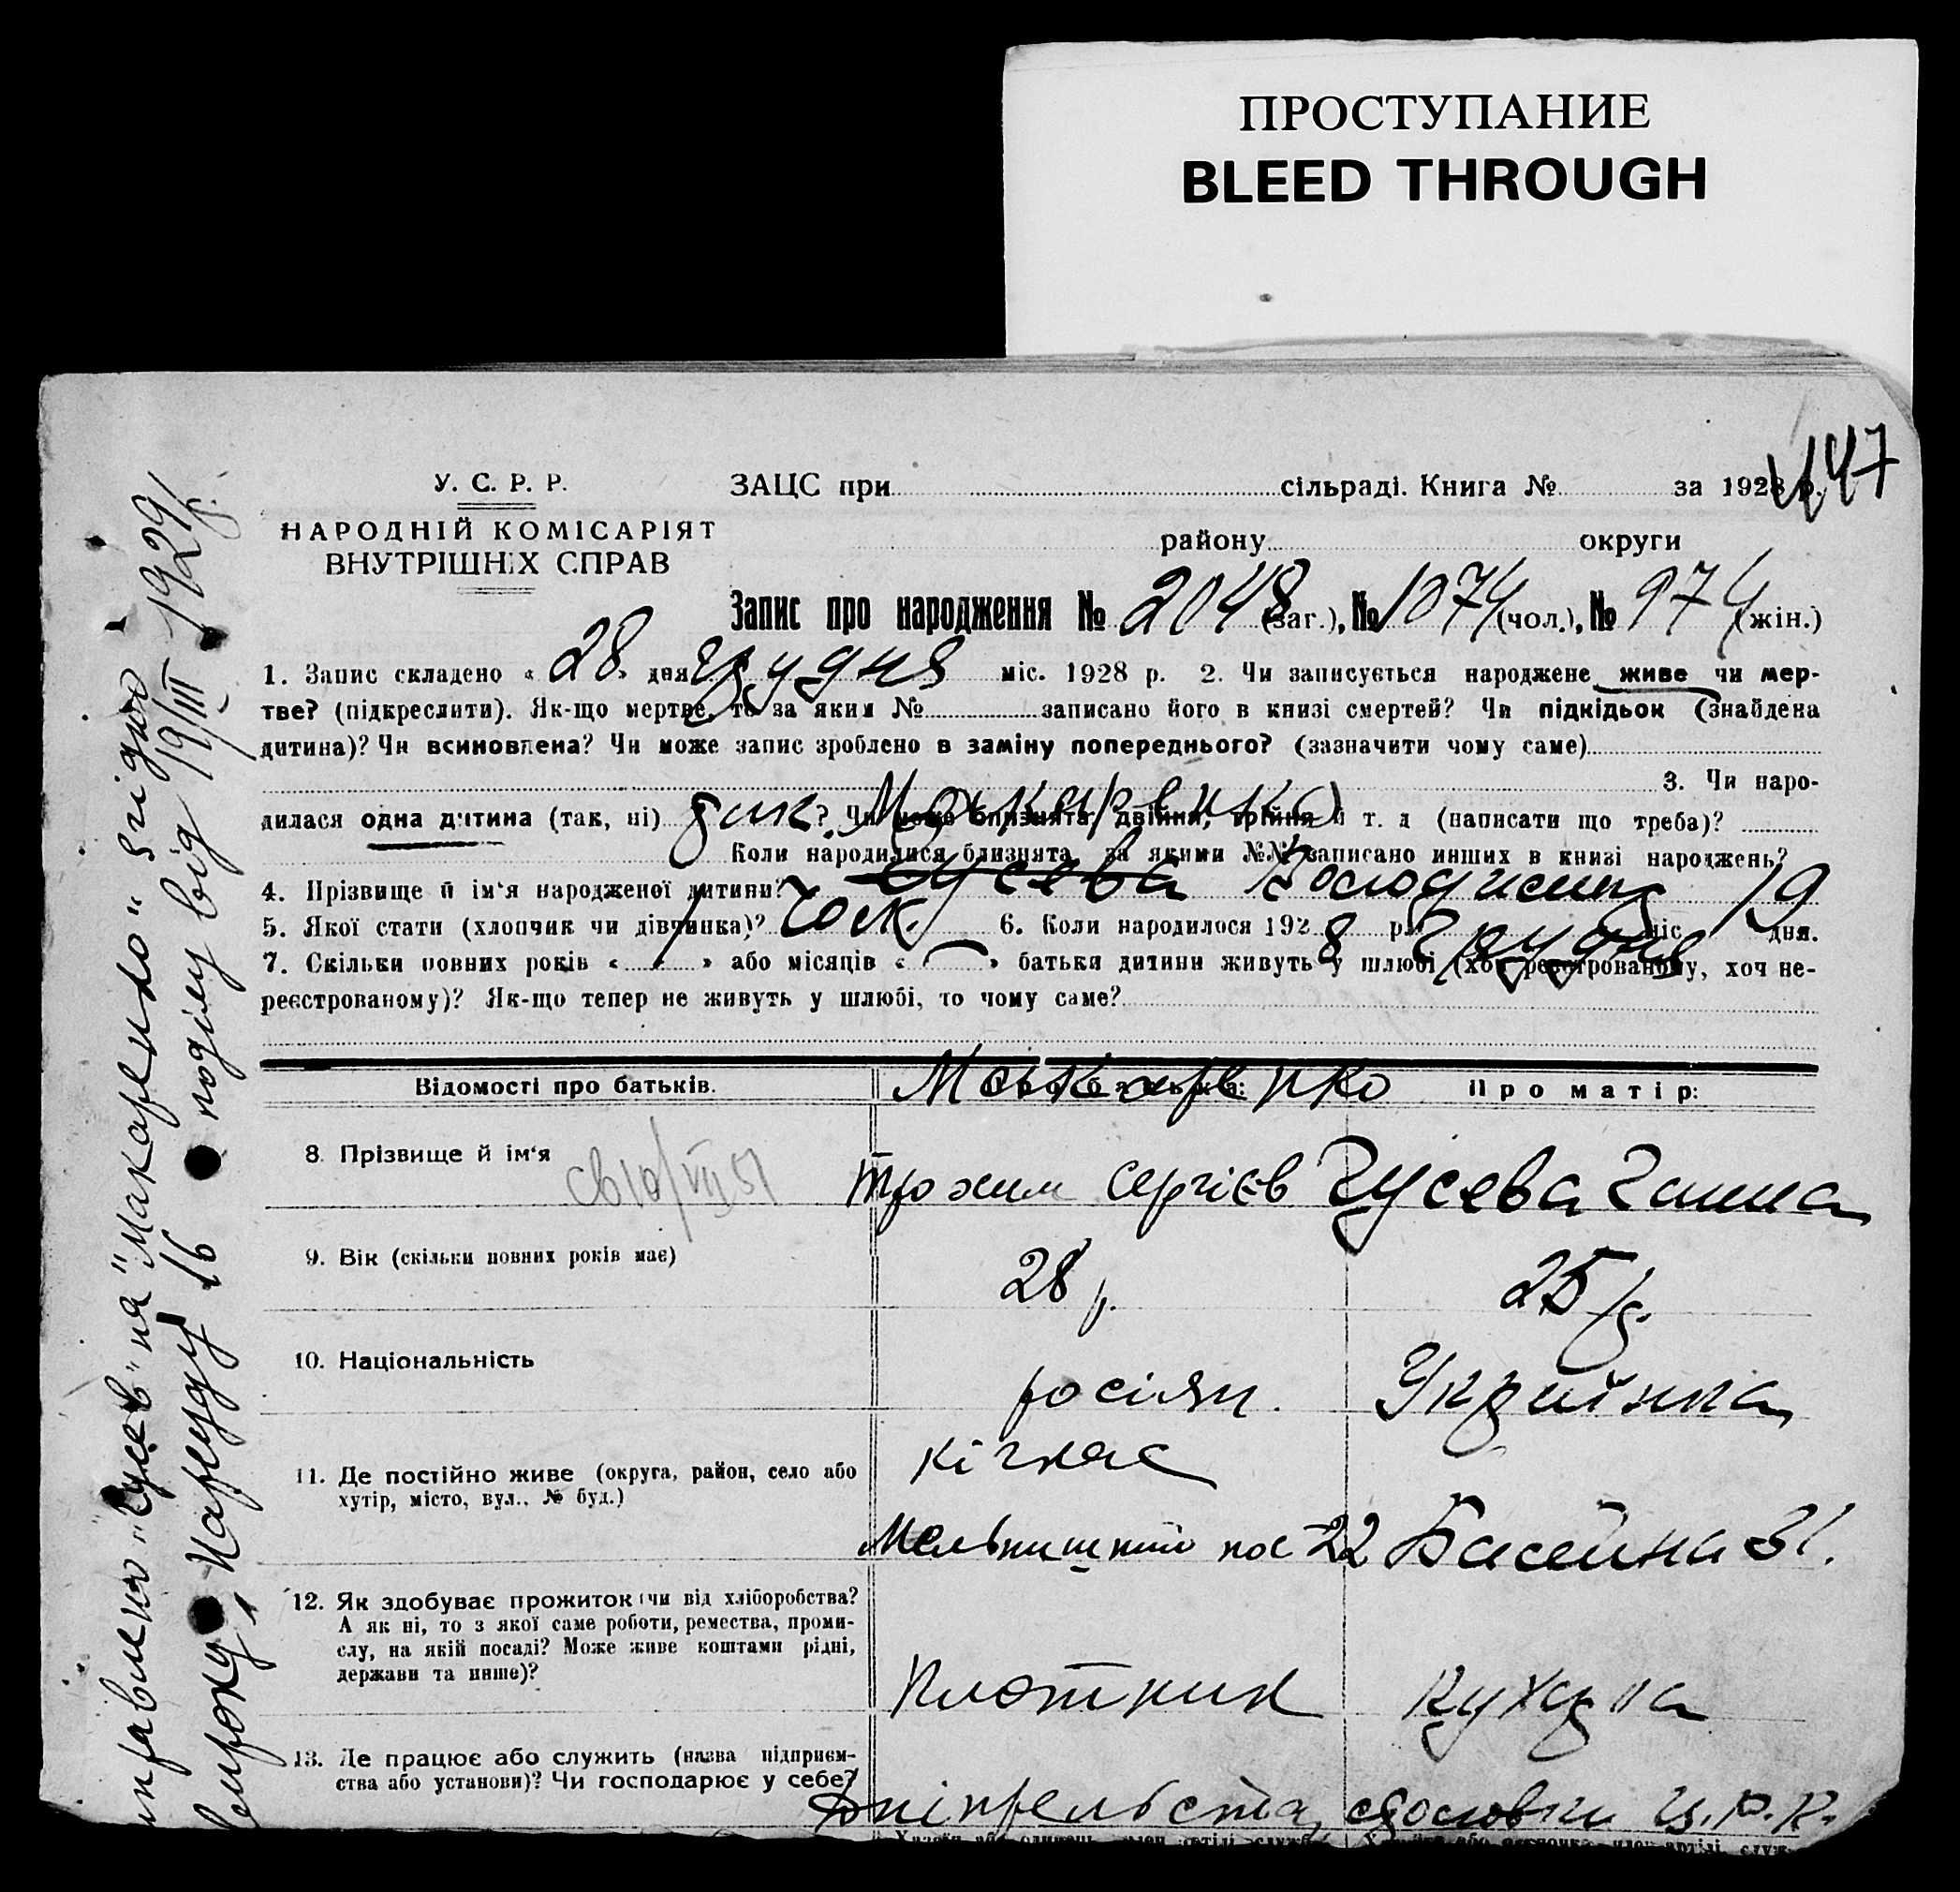 ПРОСТУПАНИЕ
BLEED THROUGH
147
У. С. Р. Р.
НАРОДНІЙ КОМІСАРІЯТ
ВНУТРІШНІХ СПРАВ
ЗАЦС при сільраді. Книга № за 1928 р.
району округи
Запис про народження № 2048 (заг.), № 1074 (чол.), № 974 (жін.)
1. Запис складено « 28 » дня грудня міс. 1928 р. 2. Чи записується народжене живе чи мер-
тве? (підкреслити). Як-що мертве, то за яким № записано його в книзі смертей? Чи підкідьок (знайдена
дитина)? Чи всиновлена? Чи може запис зроблено в заміну попереднього? (зазначити чому саме)
3. Чи наро-
дилася одна дитина (так, ні) ? Чи може близнята, двійня, трійня й т. д (написати що треба)?
Макаренко
Коли народилися близнята, за якими №№ записано инших в книзі народжень?
4. Прізвище й ім'я народженої дитини? Гусева Володимир
5. Якої стати (хлопчик чи дівчинка)? чол. 6. Коли народилося 1928 р. грудня міс 19 дня.
7. Скільки повних років « » або місяців « » батьки дитини живуть у шлюбі (хоч реєстрованому, хоч не-
реєстрованому)? Як-що тепер не живуть у шлюбі, то чому саме?
Відомості про батьків. Про батька: Про матір:
Макаренко
8. Прізвище й ім'я Трохим Сергієв Гусева Ганна
9. Вік (скільки повних років має) 28 р. 25 р.
10. Національність росіян. Українка
11. Де постійно живе (округа, район, село або
хутір, місто, вул., № буд.)
Кічкас
22 Басейна 31.
12. Як здобуває прожиток (чи від хліборобства?
А як ні, то з якої саме роботи, ремества, проми-
слу, на якій посаді? Може живе коштами рідні,
держави та инше)?
Плотник Кухарка
13. Де працює або служить (назва підприєм-
ства або установи)? Чи господарює у себе?
виправлено "Гусев" на "Макаренко" згідно
вироку Нарсуду 16 поділу від 19/III 1929 р.